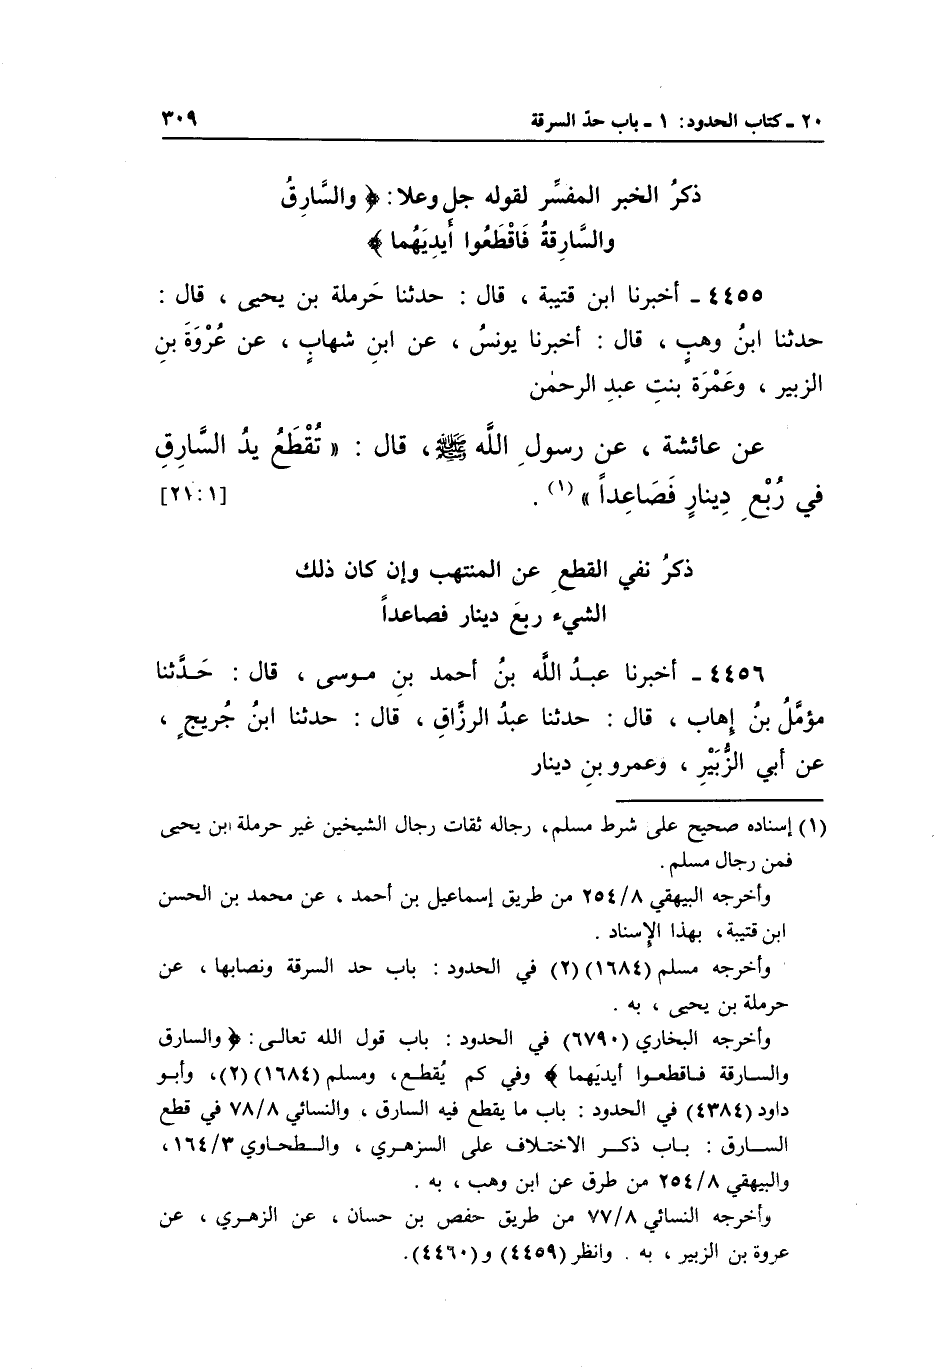 ٢٠ ـ كتاب الحدود: ١ ـ باب حدّ السرقة ٣٠٩
ذكرُ الخبر المفسِّر لقوله جل وعلا: ﴿ والسَّارِقُ
والسَّارِقةُ فَاقْطَعُوا أَيدِيَهُما ﴾
٤٤٥٥ ـ أخبرنا ابن قتيبة ، قال : حدثنا حَرملة بن يحيى ، قال :
حدثنا ابنُ وهبٍ ، قال : أخبرنا يونسُ ، عن ابنِ شهابٍ ، عن عُرْوَةَ بنِ
الزبير ، وعَمْرَة بنتِ عبدِ الرحمٰن
عن عائشة ، عن رسولِ اللَّه ﷺ، قال : « تُقْطَعُ يدُ السَّارِقِ
في رُبْعِ دِينارٍ فَصَاعِداً » (١) . [٢١:١]
ذكرُ نفي القطعِ عن المنتهب وإن كان ذلك
الشيء ربعَ دينار فصاعداً
٤٤٥٦ ـ أخبرنا عبدُ اللَّه بنُ أحمد بنِ موسى ، قال : حَدَّثنا
مؤمَّلُ بنُ إهاب ، قال : حدثنا عبدُ الرزَّاقِ ، قال : حدثنا ابنُ جُريجٍ ،
عن أبي الزُّبَيْرِ ، وعمرو بنِ دينار
(١) إسناده صحيح على شرط مسلم، رجاله ثقات رجال الشيخين غير حرملة ابن يحيى
فمن رجال مسلم.
وأخرجه البيهقي ٢٥٤/٨ من طريق إسماعيل بن أحمد ، عن محمد بن الحسن
ابن قتيبة، بهذا الإسناد .
وأخرجه مسلم (١٦٨٤) (٢) في الحدود : باب حد السرقة ونصابها ، عن
حرملة بن يحيى ، به .
وأخرجه البخاري (٦٧٩٠) في الحدود : باب قول الله تعالى: ﴿ والسارق
والسارقة فاقطعوا أيديَهما ﴾ وفي كم يُقطع، ومسلم (١٦٨٤) (٢)، وأبو
داود (٤٣٨٤) في الحدود : باب ما يقطع فيه السارق ، والنسائي ٧٨/٨ في قطع
السارق : باب ذكر الاختلاف على الزهري ، والطحاوي ١٦٤/٣،
والبيهقي ٢٥٤/٨ من طرق عن ابن وهب ، به .
وأخرجه النسائي ٧٧/٨ من طريق حفص بن حسان ، عن الزهري ، عن
عروة بن الزبير ، به . وانظر (٤٤٥٩) و (٤٤٦٠).